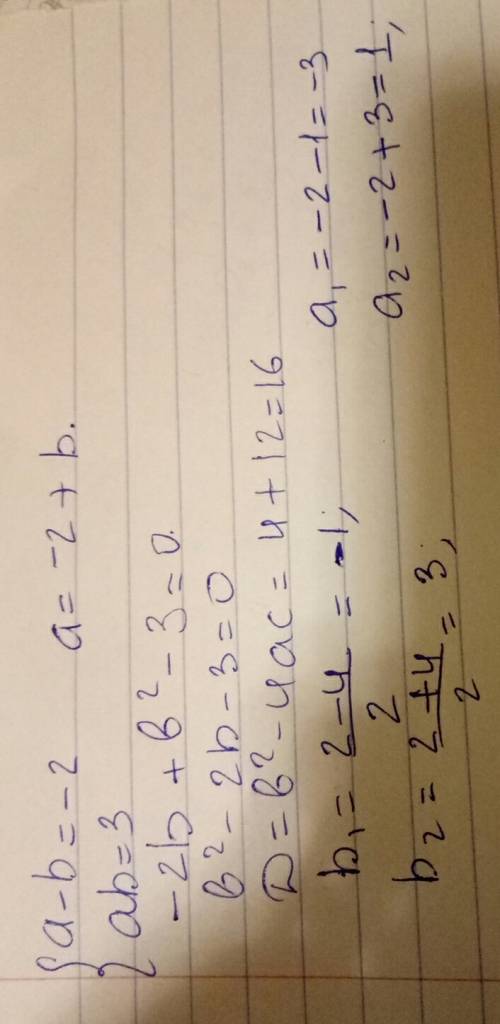 {a-b=-2 a=-2+b.
{ab=3
-2b+b²-3=0.
b²-2b-3=0
D=b²-4ac=4+12=16
b₁=(2-4)/2=-1; a₁=-2-1=-3
b₂=(2+4)/2=3; a₂=-2+3=1;